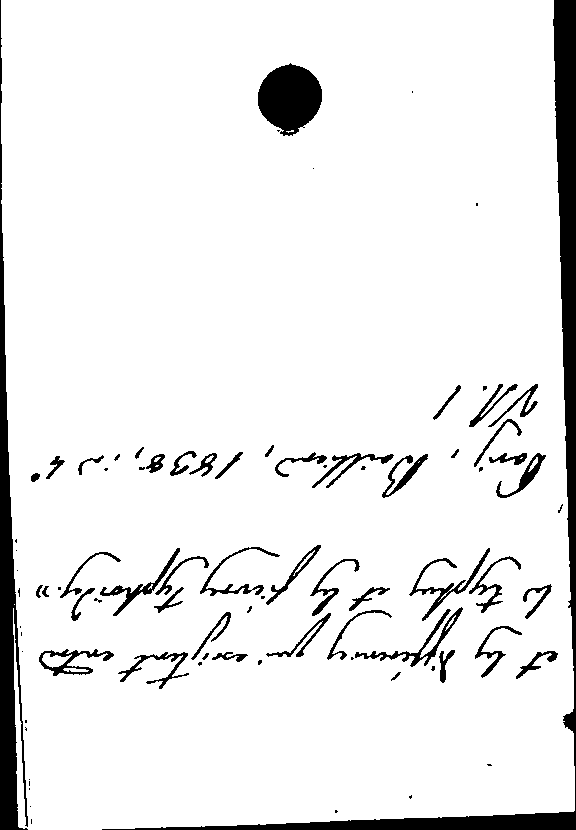 et les différences qui existent entre
le typhus et les fièvres typhoïdes. »
Paris, Baillière, 1838, in 4°